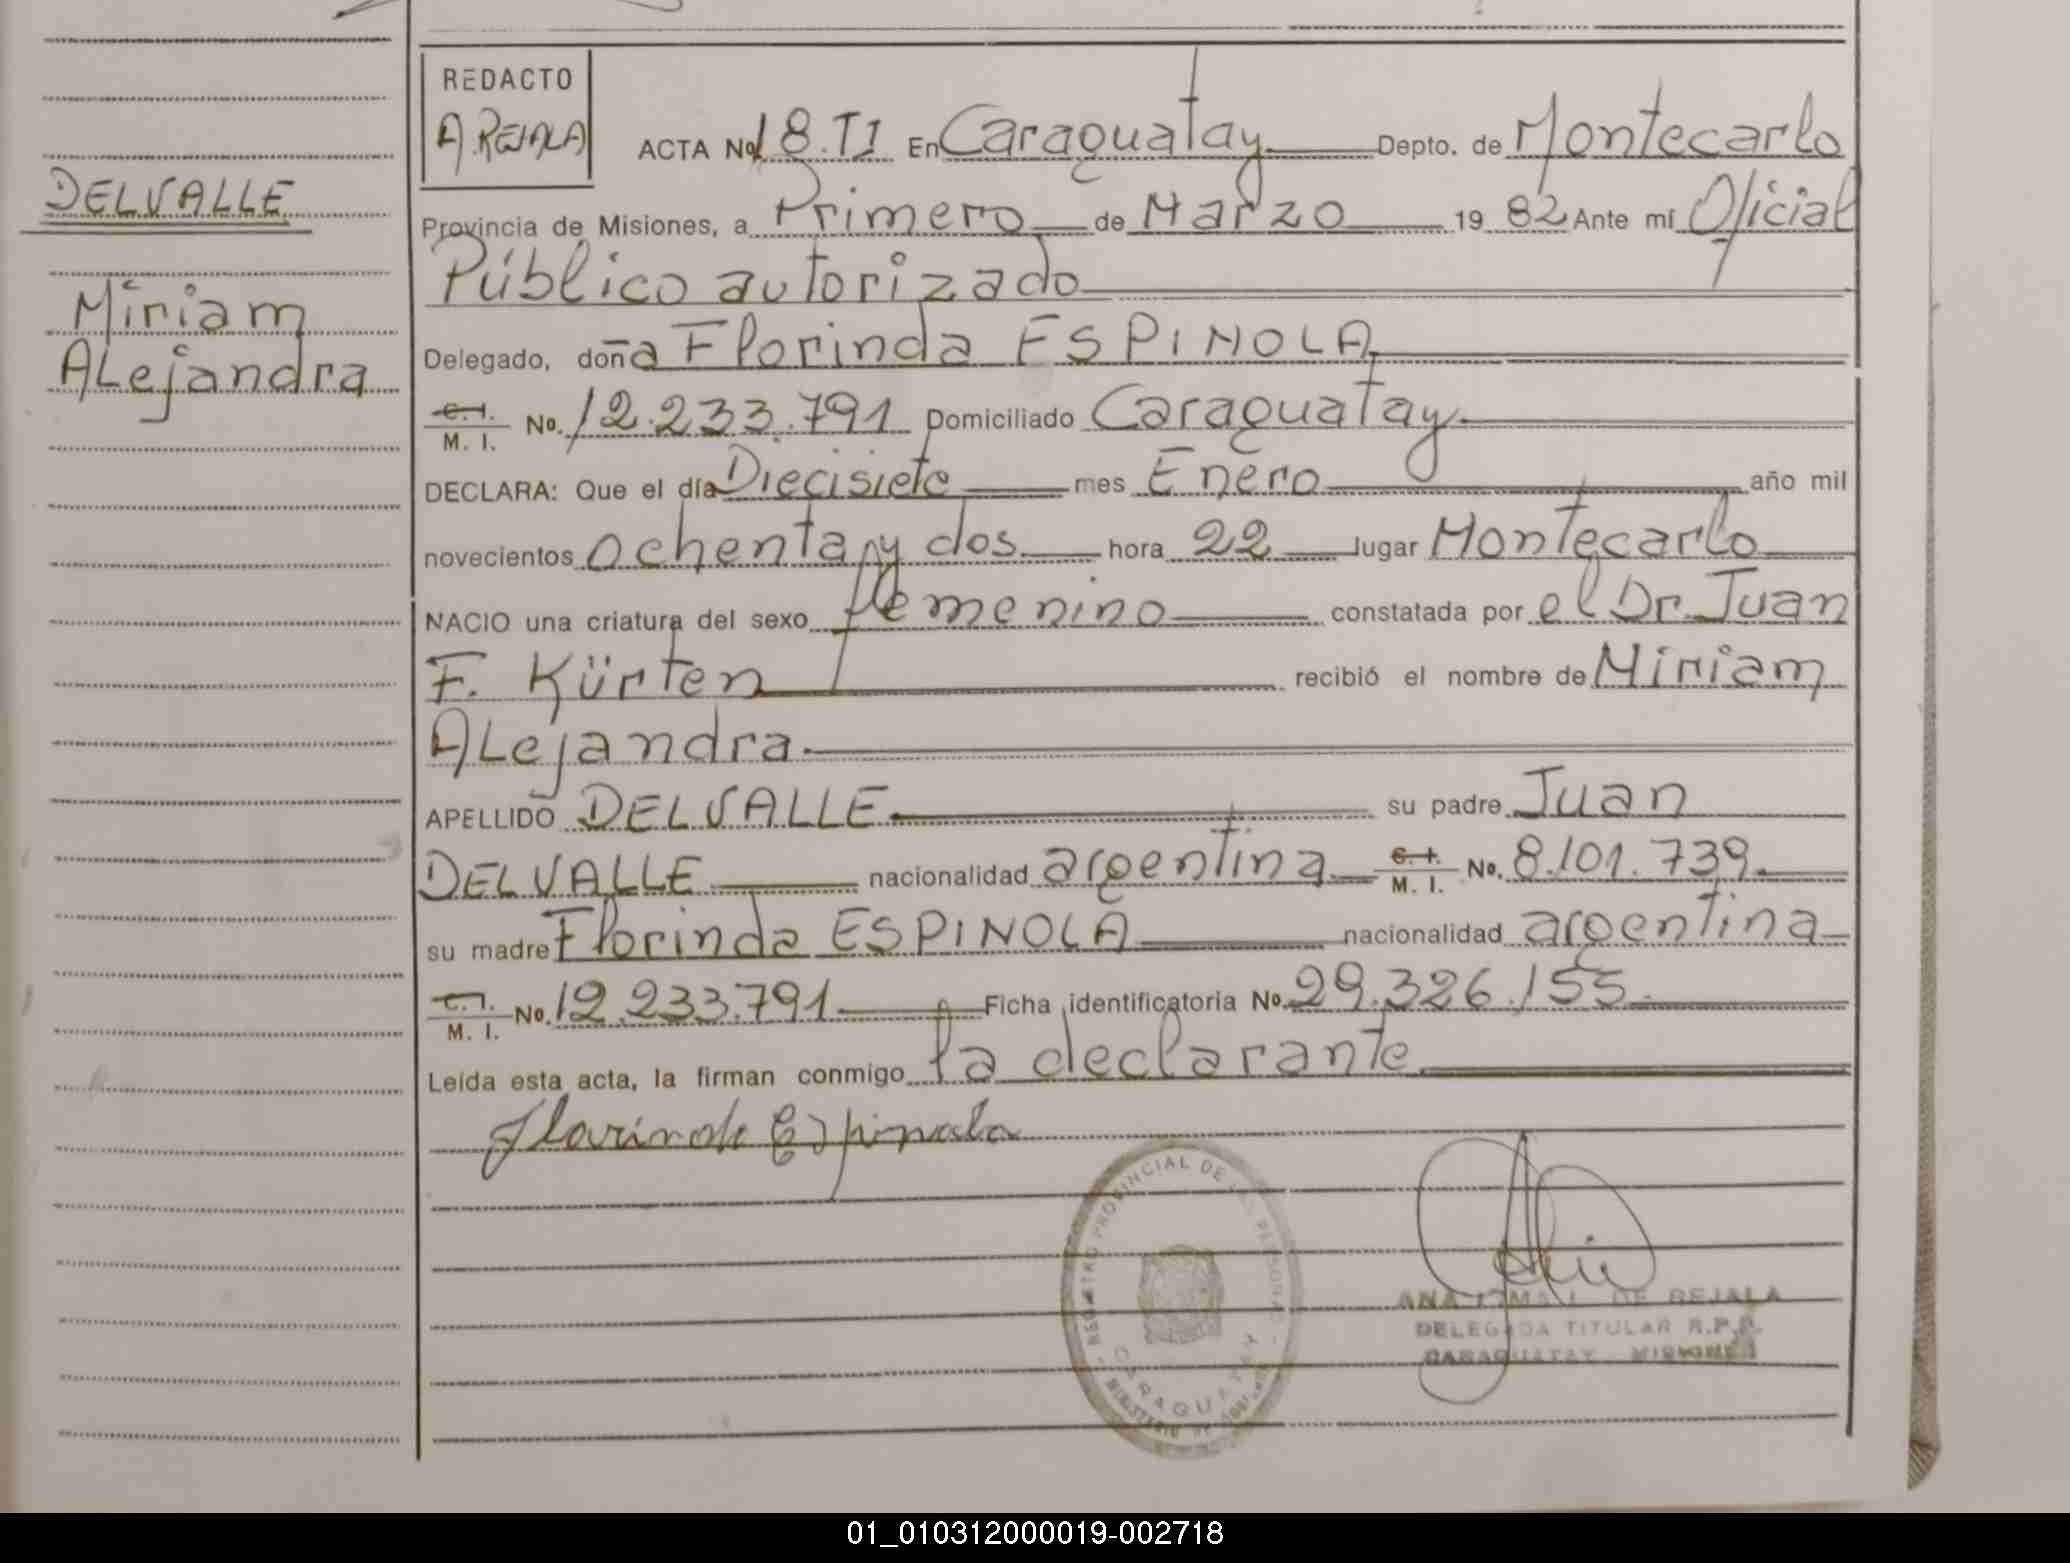 REDACTO
A. REJALA
ACTA No. 18. TI En Caraguatay Depto. de Montecarlo
DELVALLE
Provincia de Misiones, a Primero de Marzo 1982 Ante mí Oficial
Público autorizado
Miriam
Delegado, doña Florinda ESPINOLA
ALejandra
C. I. M. I. No. 12.233.791 Domiciliado Caraguatay
DECLARA: Que el día Diecisiete mes Enero año mil
novecientos ochenta y dos hora 22 lugar Montecarlo
NACIO una criatura del sexo femenino constatada por el Dr. Juan
F. Kürten recibió el nombre de Miriam
ALejandra
APELLIDO DELVALLE su padre Juan
DELVALLE nacionalidad argentina C. I. M. I. No. 8.101.739
su madre Florinda ESPINOLA nacionalidad argentina
C. I. M. I. No. 12.233.791 Ficha identificatoria No. 29.326.155
Leída esta acta, la firman conmigo la declarante
Florinda Espinola
REGISTRO PROVINCIAL DE LAS PERSONAS
CARAGUATAY
MINISTERIO DE
ANA DE REJALA
DELEGADA TITULAR R.P.P.
CARAGUATAY - MISIONES
01_010312000019-002718